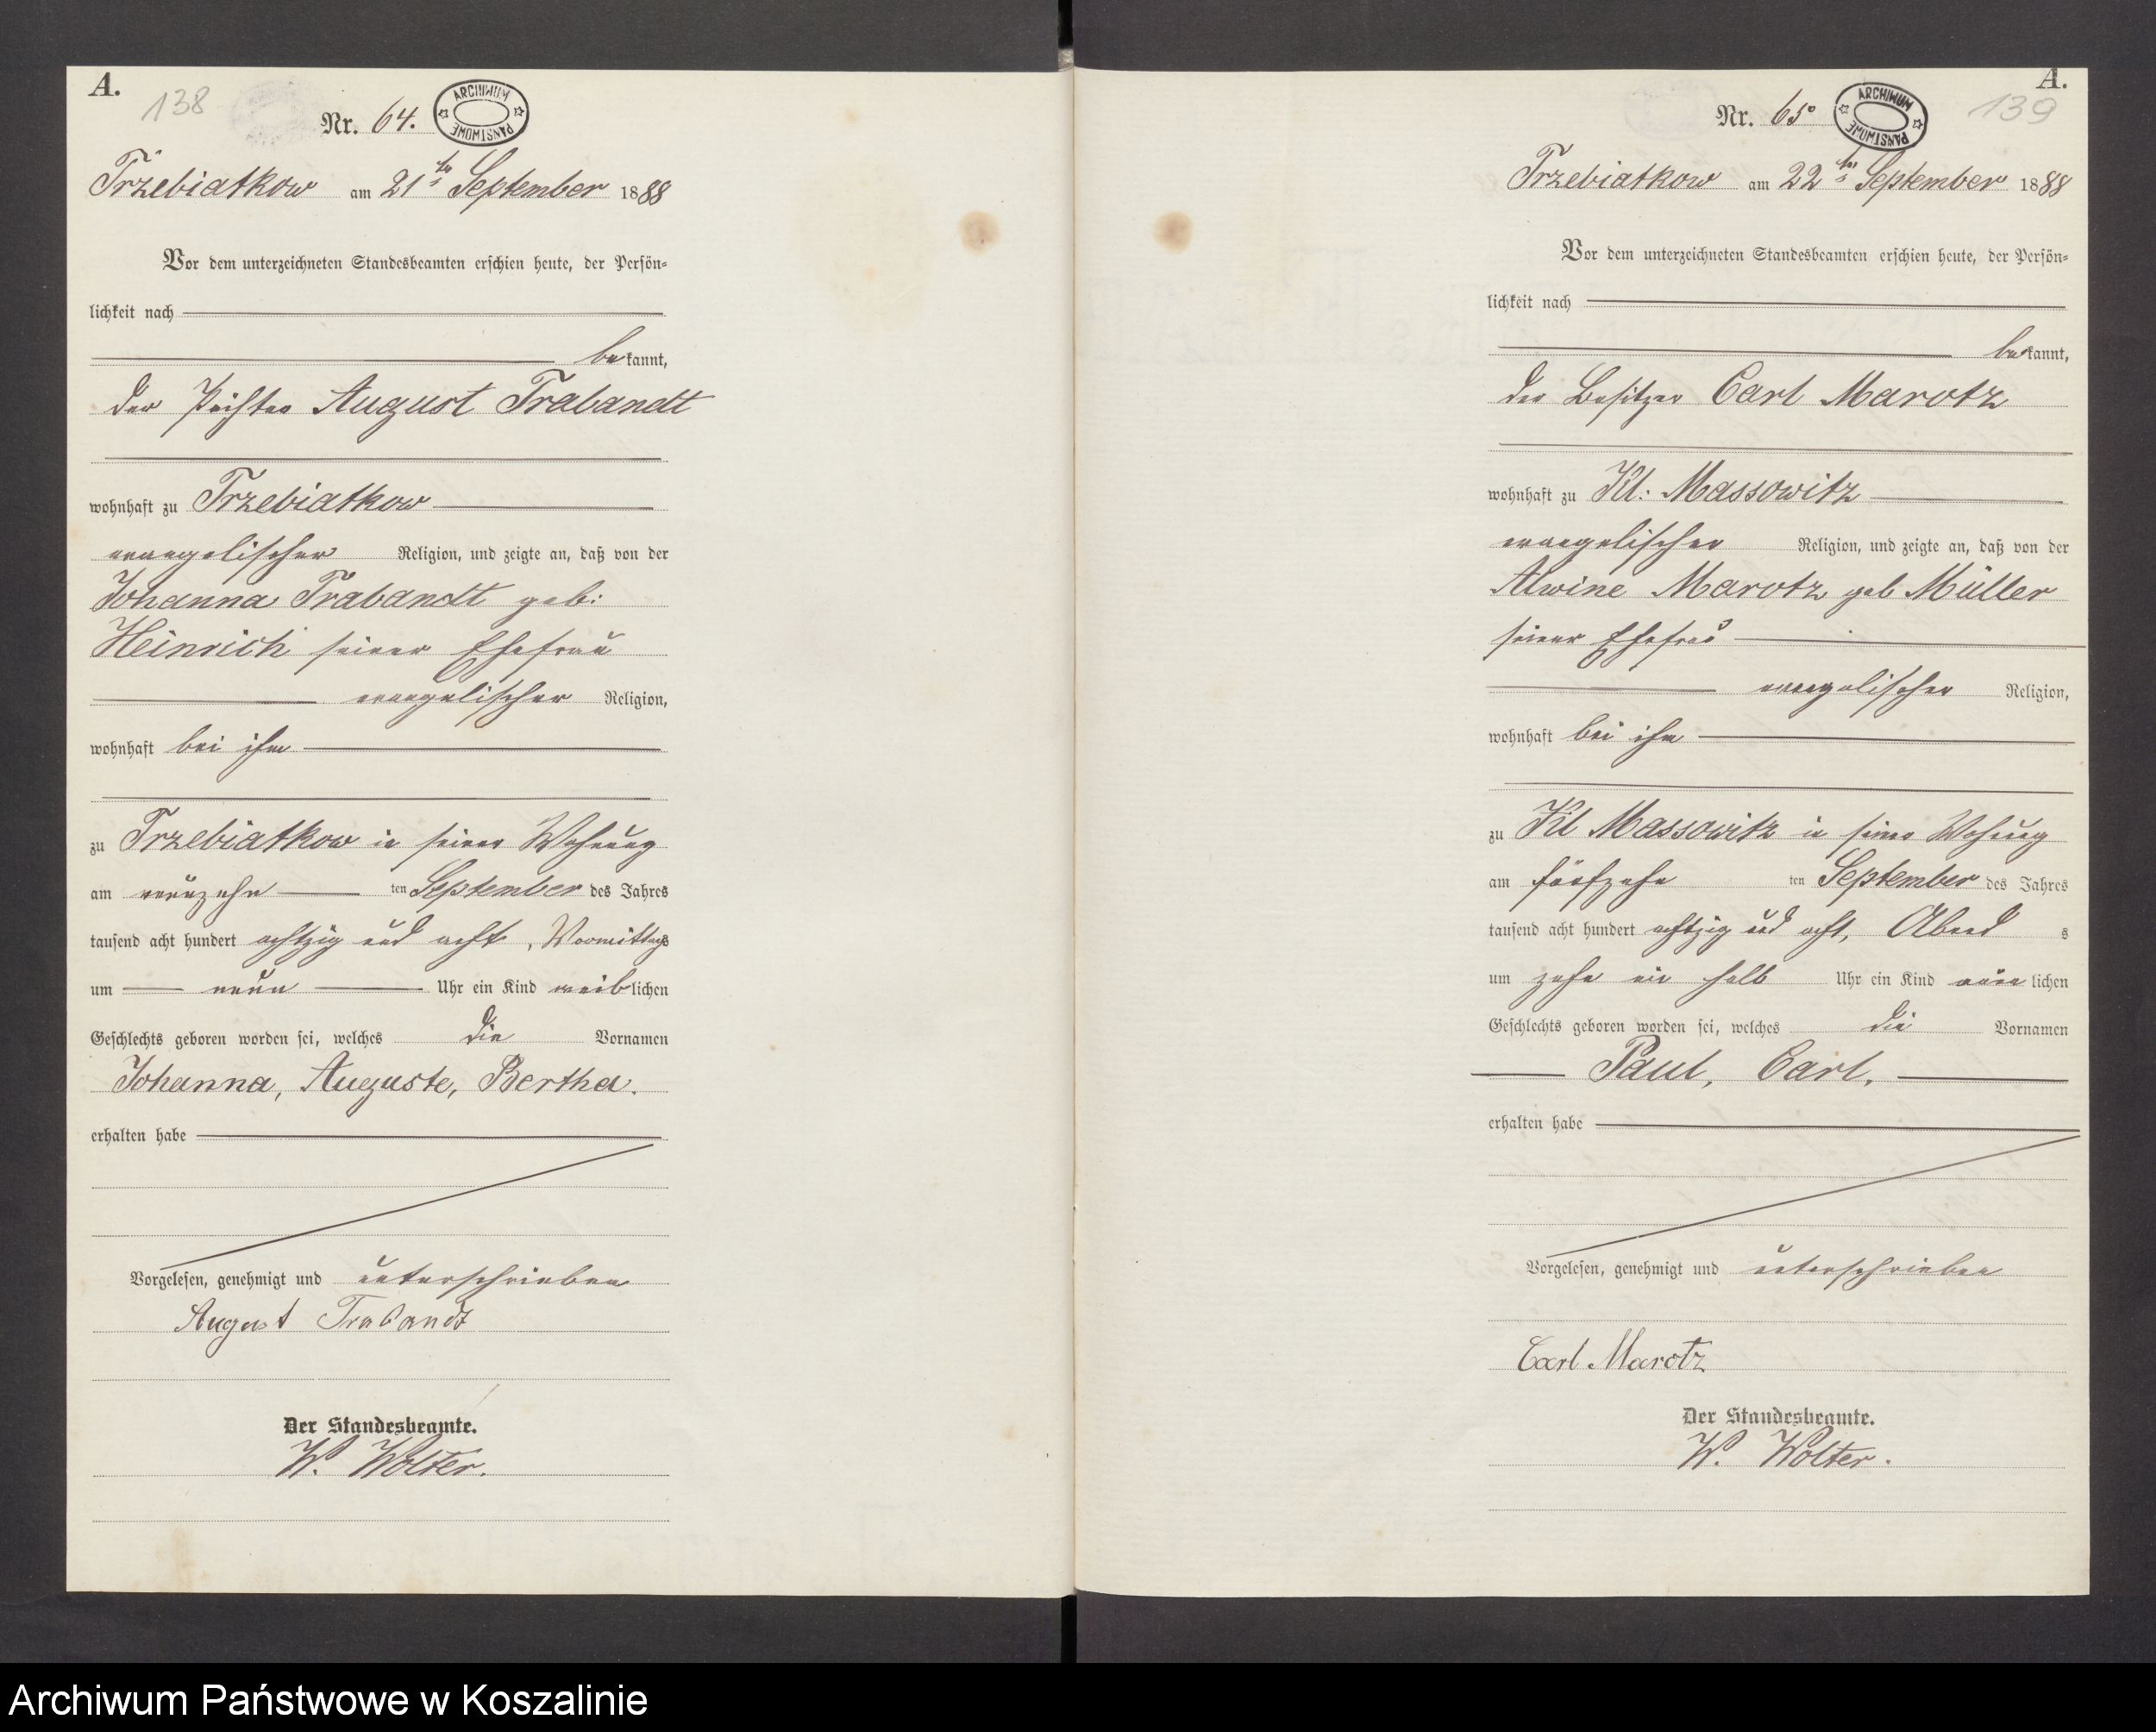 A.
138
Nr. 64.
ARCHIWUM PAŃSTWOWE
Trzebiatkow am 21ten September 1888
Vor dem unterzeichneten Standesbeamten erschien heute, der Persön-
lichkeit nach
bekannt,
der Pächter August Trabandt
wohnhaft zu Trzebiatkow
evangelischer Religion, und zeigte an, daß von der
Johanna Trabandt geb:
Heinrich seiner Ehefrau
evangelischer Religion,
wohnhaft bei ihm
zu Trzebiatkow in seiner Wohnung
am neunzehn ten September des Jahres
tausend acht hundert achtzig und acht, Vormittags
um neun Uhr ein Kind weiblichen
Geschlechts geboren worden sei, welches die Vornamen
Johanna, Auguste, Bertha.
erhalten habe
Vorgelesen, genehmigt und unterschrieben
August Trabandt
Der Standesbeamte.
W. Wolter.
A.
139
Nr. 65.
ARCHIWUM PAŃSTWOWE
Trzebiatkow am 22ten September 1888
Vor dem unterzeichneten Standesbeamten erschien heute, der Persön-
lichkeit nach
bekannt,
der Besitzer Carl Marotz
wohnhaft zu Kl. Massowitz
evangelischer Religion, und zeigte an, daß von der
Alwine Marotz geb Müller
seiner Ehefrau
evangelischer Religion,
wohnhaft bei ihm
zu Kl Massowitz in seiner Wohnung
am fünfzehn ten September des Jahres
tausend acht hundert achtzig und acht, Abends
um zehn ein halb Uhr ein Kind männlichen
Geschlechts geboren worden sei, welches die Vornamen
Paul, Carl.
erhalten habe
Vorgelesen, genehmigt und unterschrieben
Carl Marotz
Der Standesbeamte.
W. Wolter.
Archiwum Państwowe w Koszalinie